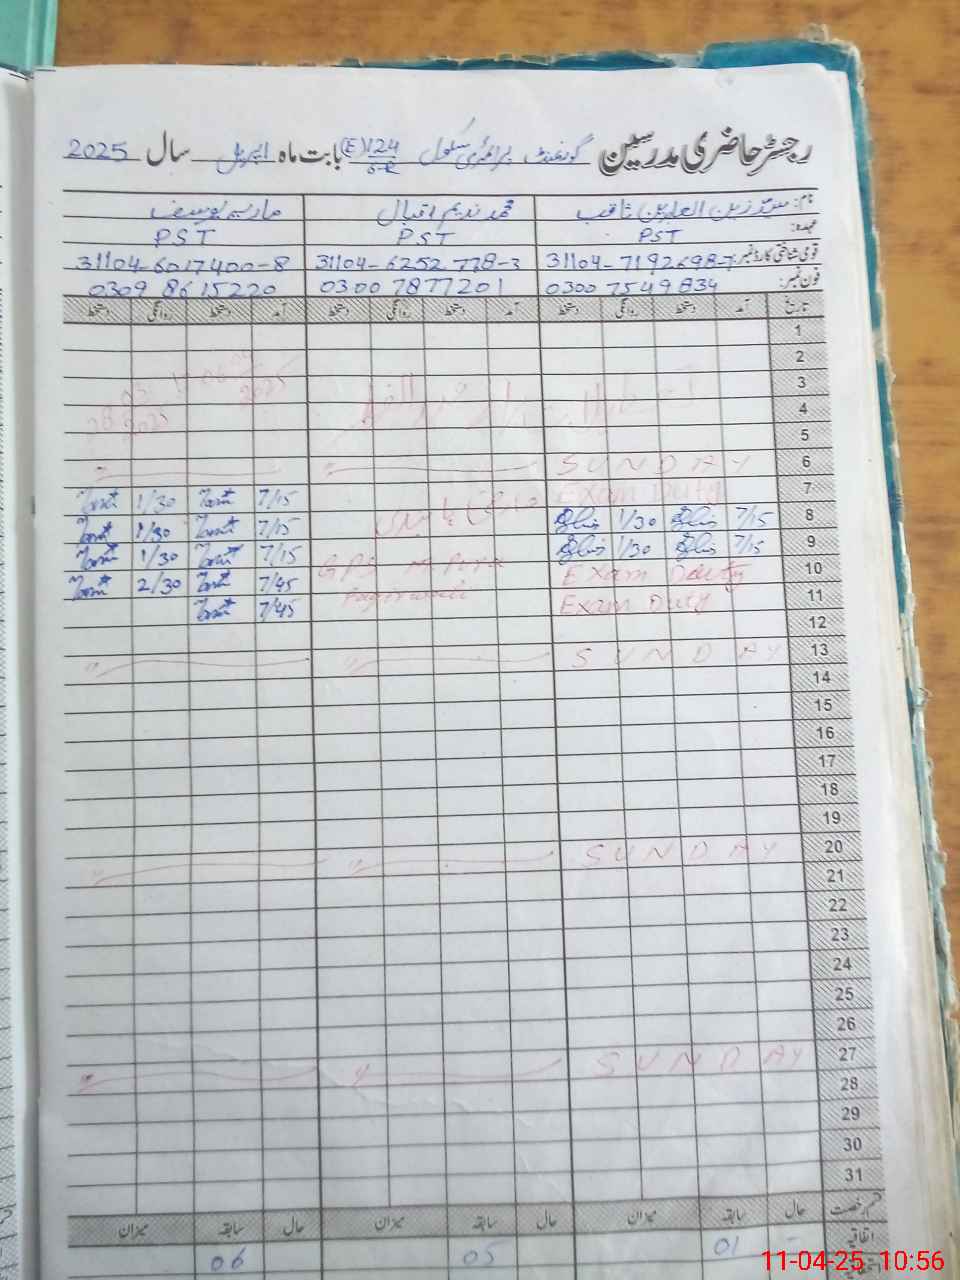 رجسٹر حاضری مدرسین گورنمنٹ پرائمری سکول 124(E) بابت ماہ اپریل سال 2025
نام: سید زین العابدین ثاقب محمد ندیم اقبال ماریہ یوسف
عہدہ: PST PST PST
قومی شناختی کارڈ نمبر: 31104-7192698-7 31104-6252778-3 31104-6017400-8
فون نمبر: 0300 7549834 0300 7877201 0309 8615220
تاریخ آمد دستخط روانگی دستخط آمد دستخط روانگی دستخط آمد دستخط روانگی دستخط
1
2
3
4
5
6 SUNDAY " "
7 Exam Duty 7/15 1/30
8 7/15 1/30 7/15 1/30
9 7/15 1/30 7/15 1/30
10 Exam Duty GPS 7/45 2/30
11 Exam Duty 7/45
12
13 SUNDAY " "
14
15
16
17
18
19
20 SUNDAY " "
21
22
23
24
25
26
27 SUNDAY " "
28
29
30
31
قسم رخصت حال سابقہ میزان حال سابقہ میزان حال سابقہ میزان
اتفاقیہ - 01 05 06
11-04-25 10:56